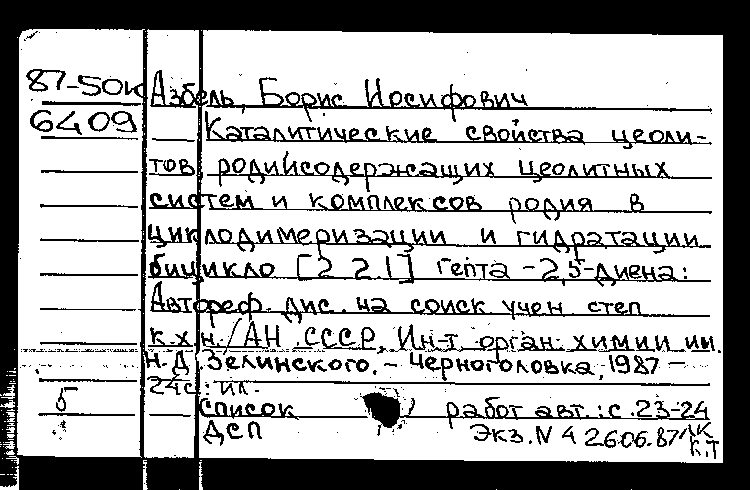 87-50к Азбель, Борис Иосифович
6409 Каталитические свойства цеоли-
тов, родийсодержащих цеолитных
систем и комплексов родия в
циклодимеризации и гидратации
бицикло [2 2 1] гепта-2,5-диена:
Автореф. дис. на соиск учен степ
к.х.н./АН СССР, Ин-т орган. химии им.
Н.Д. Зелинского. - Черноголовка, 1987 -
24с.: ил.
Б список работ авт.: с. 23-24
ДСП Экз. N 4 26.06.87